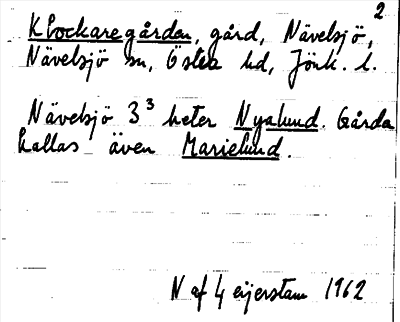 2
Klockaregården, gård, Nävelsjö,
Nävelsjö sn, Östra hd, Jönk. l.
Nävelsjö 3³ heter Nyalund. Gårda
kallas även Marielund.
N af Geijerstam 1962